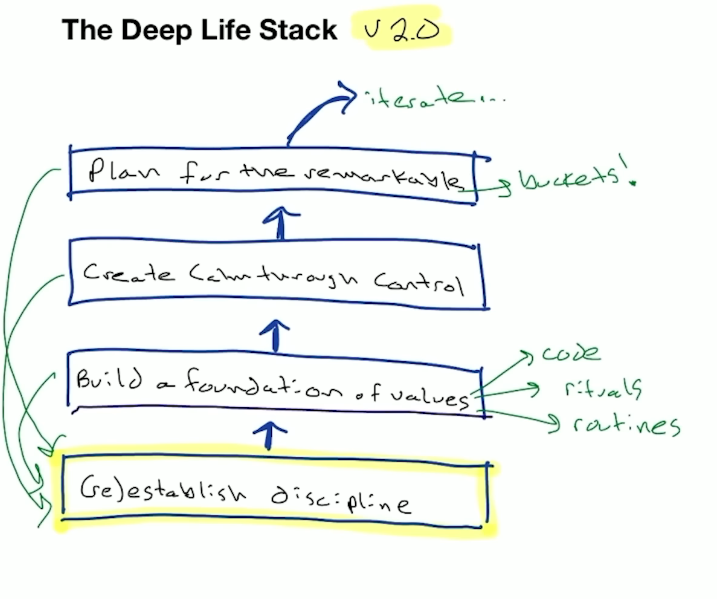 The Deep Life Stack v 2.0
iterate...
Plan for the remarkable
buckets!
Create Calm through Control
Build a foundation of values
code
rituals
routines
(re)establish discipline